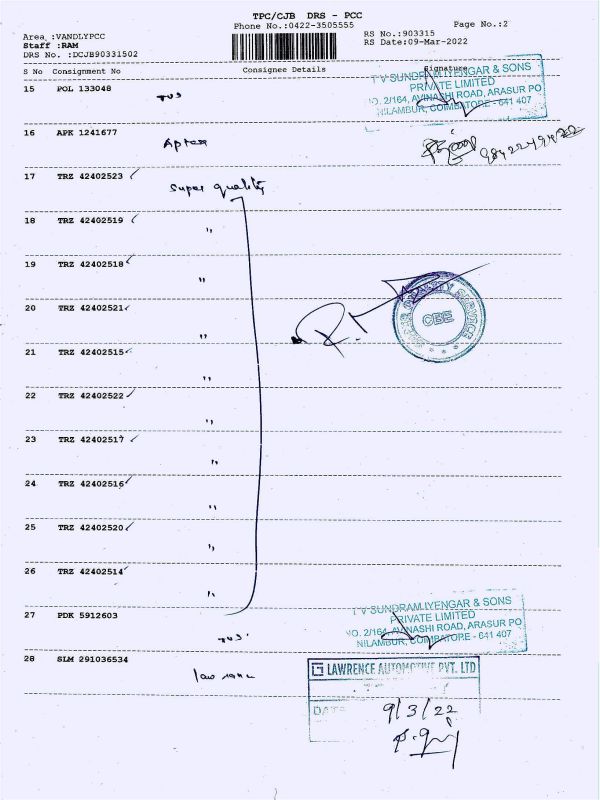 TPC/CJB DRS - PCC
Phone No.:0422-3505555
Page No.:2
Area :VANDLYPCC
RS No.:903315
Staff :RAM
RS Date:09-Mar-2022
DRS No. :DCJB90331502
S No Consignment No Consignee Details Signature
T V SUNDRAM IYENGAR & SONS
PRIVATE LIMITED
NO. 2/164, AVINASHI ROAD, ARASUR PO
NILAMBUR, COIMBATORE - 641 407
15 POL 133048
TVS
16 APK 1241677
17 TRZ 42402523
Super quality
18 TRZ 42402519
"
19 TRZ 42402518
"
CBE
20 TRZ 42402521
"
21 TRZ 42402515
"
22 TRZ 42402522
"
23 TRZ 42402517
"
24 TRZ 42402516
"
25 TRZ 42402520
"
26 TRZ 42402514
"
T V SUNDRAM IYENGAR & SONS
PRIVATE LIMITED
NO. 2/164, AVINASHI ROAD, ARASUR PO
NILAMBUR, COIMBATORE - 641 407
27 PDK 5912603
TVS
28 SLM 291036534
LAWRENCE AUTOMOTIVE PVT. LTD
DATE
9/3/22